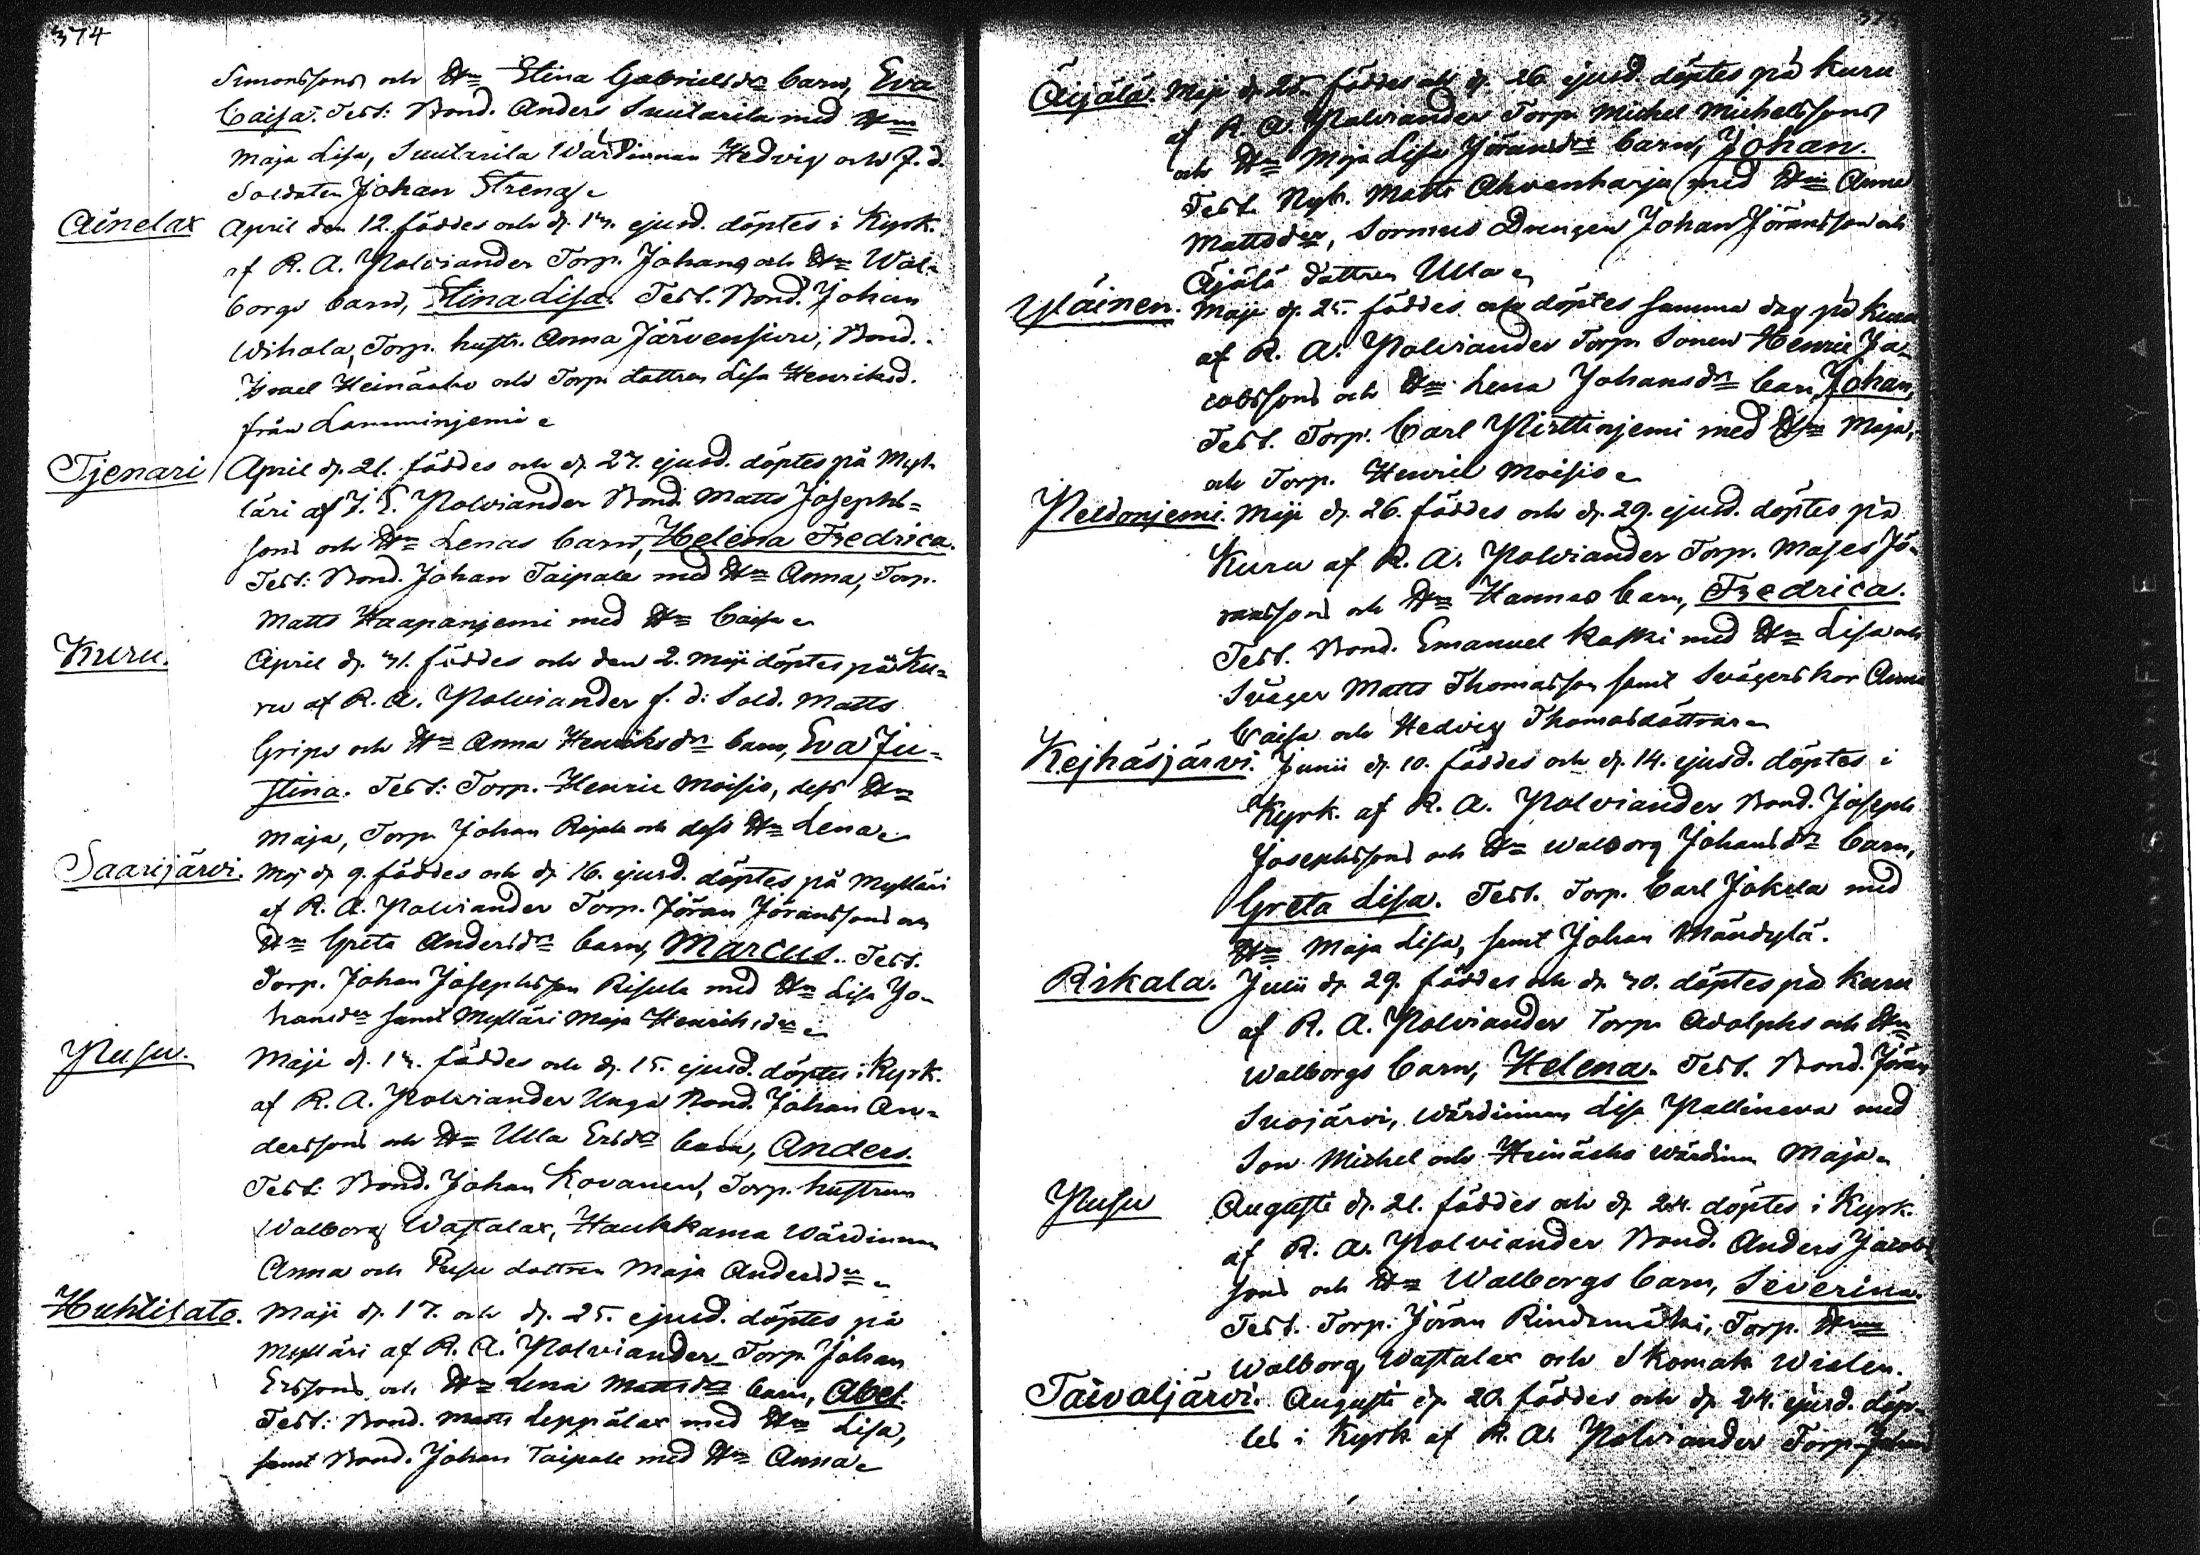 374
Simonssons och H:n Stina Gabrielsd:r barn, Eva
Caisa. Test: Bond. Anders Suutarila med H:n
Maja Lisa, Suutarila Wärdinnan Hedvig och F. d.
Soldaten Johan Streng
Ainelax April den 12. föddes och d. 13. ejusd. döptes i Kyrk.
af R. A. Polviander Torp. Johans och H:n Wal-
borgs barn, Stina Lisa. Test. Bond. Johan
Wihola, Torp. hustr. Anna Järvensivu, Bond.
Israel Heinäaho och Torp. dottren Lisa Henriksd.
från Lamminjemi
Tjenari April d. 21. föddes och d. 27. ejusd. döptes på Myl-
läri af J. E. Polviander Bond. Matts Josephs-
sons och H:n Lenas barn, Helena Fredrica.
Test: Bond. Johan Taipale med H:n Anna, Torp.
Matts Haapanjemi med H:n Caisa
Kuru. April d. 31. föddes och den 2. Maji döptes på Ku-
ru af R. A. Polviander f. d. Sold. Matts
Grips och H:n Anna Henriksd:r barn, Eva Ju-
stina. Test: Torp. Henric Moisio, dess H:n
Maja, Torp. Johan och dess H:n Lena
Saarijärvi. Maj d. 9. föddes och d. 16. ejusd. döptes på Mylläri
af R. A. Polviander Torp. Jöran Jöranssons och
H:n Greta Andersd:r barn, Marcus. Test.
Torp. Johan Josephsson Risula med H:n Lisa Jo-
hansd:r samt Mylläri Maja Henriksd:r
Pusu. Maji d. 13. föddes och d. 15. ejusd. döptes i Kyrk.
af R. A. Polviander Unga Bond. Johan An-
derssons och H:n Ulla Ersd:r barn, Anders.
Test: Bond. Johan Kovanen, Torp. hustrun
Walborg Wastalax, Haukkama Wärdinnan
Anna och Pusu dottren Maja Andersd:r
Huhtisato. Maji d. 17. och d. 25. ejusd. döptes på
Mylläri af R. A. Polviander Torp. Johan
Erssons och H:n Lena Mattsd:r barn, Abel.
Test: Bond. Matts Leppälax med H:n Lisa,
samt Bond. Johan Taipale med H:n Anna
375
Äijälä. Maji d. 25. föddes och d. 26. ejusd. döptes på Kuru
af R. A. Polviander Torp. Michel Michelssons
och H:n Maja Lisa Jöransd:r barn, Johan.
Test. Nyb. Matts Ahvenharju med H:n Anna
Mattsd:r, Sormus Drengen Johan Jöransson och
Äjälä dottren Ulla
Yläinen. Maji d. 25. föddes och döptes samma dag på Kuru
af R. A. Polviander Torp. Sonen Henric Ja-
cobssons och H:n Lena Johansd:r barn, Johan,
Test. Torp. Carl Pirttinjemi med H:n Maja,
och Torp. Henric Moisio
Peldonjemi. Maji d. 26. föddes och d. 29. ejusd. döptes på
Kuru af R. A. Polviander Torp. Moses Jö-
ranssons och H:n Hannas barn, Fredrica.
Test. Bond. Emanuel Koski med H:n Lisa och
Svåger Matts Thomasson samt Svägerskor Anna
Caisa och Hedvig Thomasdöttrar
Kejhäsjärvi. Junii d. 10. föddes och d. 14. ejusd. döptes i
Kyrk. af R. A. Polviander Bond. Joseph
Josephssons och H:n Walborg Johansd:r barn,
Greta Lisa. Test. Torp. Carl Jokela med
H:n Maja Lisa, samt Johan Mändylä.
Rikala. Julii d. 29. föddes och d. 30. döptes på Kuru
af R. A. Polviander Torp. Adolphs och H:n
Walborgs barn, Helena. Test. Bond. Jöran
Suojärvi, Wärdinnan Lisa Pallineva med
Son Michel och Heinäaho Wärdinn Maja
Pusu Augusti d. 21. föddes och d. 24. döptes i Kyrk.
af R. A. Polviander Bond. Anders Jacobs
sons och H:n Walborgs barn, Severina.
Test. Torp. Jöran Rindamäki, Torp. H:n
Walborg Wastalax och Skomak Wialen.
Taivaljärvi. Augusti d. 20. föddes och d. 24. ejusd. döp-
tes i Kyrk. af R. A. Polviander Torp. Johans
KODAK SAFETY FIL